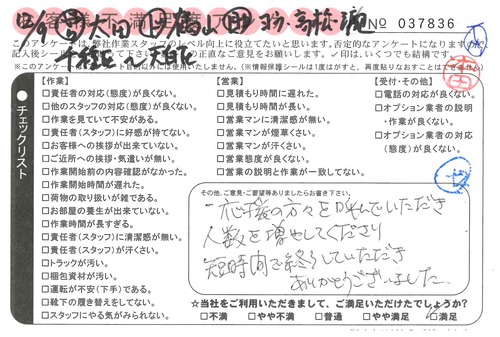 No 037836
このアンケートは、弊社作業スタッフのレベル向上に役立てたいと思います。否定的なアンケートになりますので、
チェックリスト
【作業】
□責任者の対応(態度)が良くない。
□他のスタッフの対応(態度)が良くない。
□作業を見ていて不安がある。
□責任者(スタッフ)に好感が持てない。
□お客様への挨拶が出来ていない。
□ご近所への挨拶・気遣いが無い。
□作業開始前の内容確認がなかった。
□作業開始時間が遅れた。
□荷物の取り扱いが雑である。
□お部屋の養生が出来ていない。
□作業時間が長すぎる。
□責任者(スタッフ)に清潔感が無い。
□責任者(スタッフ)が汗くさい。
□トラックが汚い。
□梱包資材が汚い。
□運転が不安(下手)である。
□靴下の履き替えをしてない。
□スタッフにやる気がみられない。
【営業】
□見積もり時間に遅れた。
□見積り時間が長い。
□営業マンに清潔感が無い。
□営業マンが煙草くさい。
□営業マンが汗くさい。
□営業態度が良くない。
□営業の説明と作業が一致してない。
【受付・その他】
□電話の対応が良くない。
□オプション業者の説明
・作業が良くない。
□オプション業者の対応
(態度)が良くない。
その他、ご意見・ご要望等ありましたらお書き下さい。
応援の方々を呼んでいただき
人数を増やしてくださり
短時間で終了していただき
ありがとうございました。
☆当社をご利用いただきまして、ご満足いただけたでしょうか?
□不満 □やや不満 □普通 □やや満足 □満足